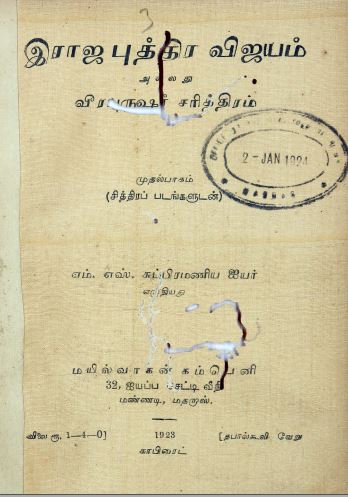 3
இராஜ புத்திர விஜயம்
அல்லது
வீரபுருஷர் சரித்திரம்
2 - JAN 1924
MADRAS
முதல்பாகம்
(சித்திரப் படங்களுடன்)
எம். எஸ். சுப்பிரமணிய ஐயர்
எழுதியது
மயில்வாகன் கம்பெனி
32, ஐயப்ப செட்டி வீதி
மண்ணடி, மதராஸ்.
விலை ரூ. 1-4-0] 1923 [தபால்கூலி வேறு
காபிரைட்